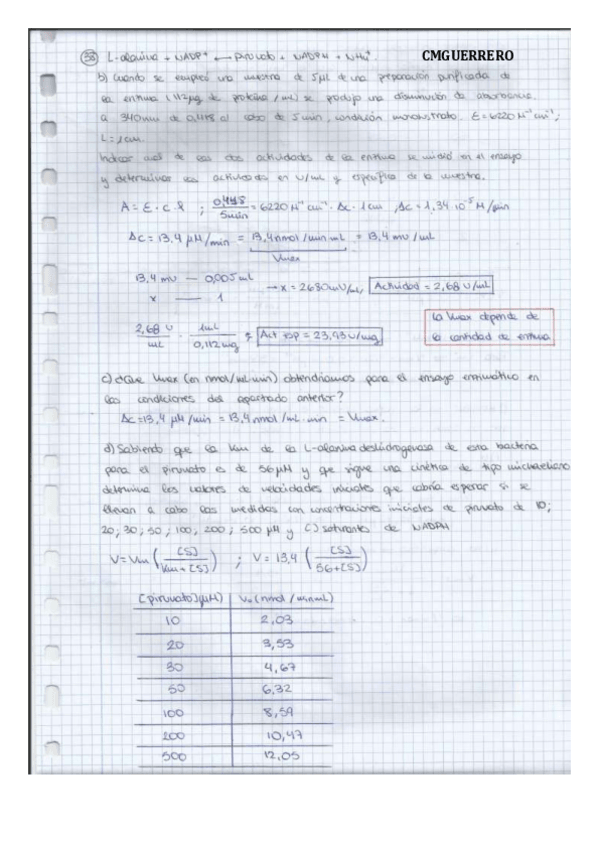 38 L-alanina + NADP⁺ ⟷ piruvato + NADPH + NH₄⁺. CMGUERRERO
b) Cuando se empleó una muestra de 5μL de una preparación purificada de
la enzima (112μg de proteína / mL) se produjo una disminución de absorbancia
a 340nm de 0,418 al cabo de 5 min, condición monosustrato. ε=6220 M⁻¹ cm⁻¹;
L=1cm.
Indicar cuál de las dos actividades de la enzima se midió en el ensayo
y determinar las actividades en U/mL y específica de la muestra.
A = ε · c · l ; 0,418 / 5min = 6220 M⁻¹ cm⁻¹ · Δc · 1cm , Δc = 1,34 · 10⁻⁵ M/min
Δc = 13,4 μM/min = 13,4 nmol/min·mL = 13,4 mU/mL
Vmax
13,4 mU — 0,005 mL
x — 1
→ x = 2680 mU/mL, Actividad = 2,68 U/mL
2,68 U / mL · 1mL / 0,112 mg ; Act esp = 23,93 U/mg
La Vmax depende de
la cantidad de enzima
c) ¿Qué Vmax (en nmol/mL·min) obtendríamos para el ensayo enzimático en
las condiciones del apartado anterior?
Δc = 13,4 μM/min = 13,4 nmol/mL·min = Vmax.
d) Sabiendo que la Km de la L-alanina deshidrogenasa de esta bacteria
para el piruvato es de 56μM y que sigue una cinética de tipo michaeliano
determina los valores de velocidades iniciales que cabría esperar si se
llevan a cabo las medidas con concentraciones iniciales de piruvato de 10;
20; 30; 50; 100; 200; 500 μM y [ ] saturantes de NADPH
V = Vm ( [S] / Km + [S] ) ; V = 13,4 ( [S] / 56 + [S] )
[piruvato](μM) V₀ (nmol / min·mL)
10 2,03
20 3,53
30 4,67
50 6,32
100 8,59
200 10,47
500 12,05